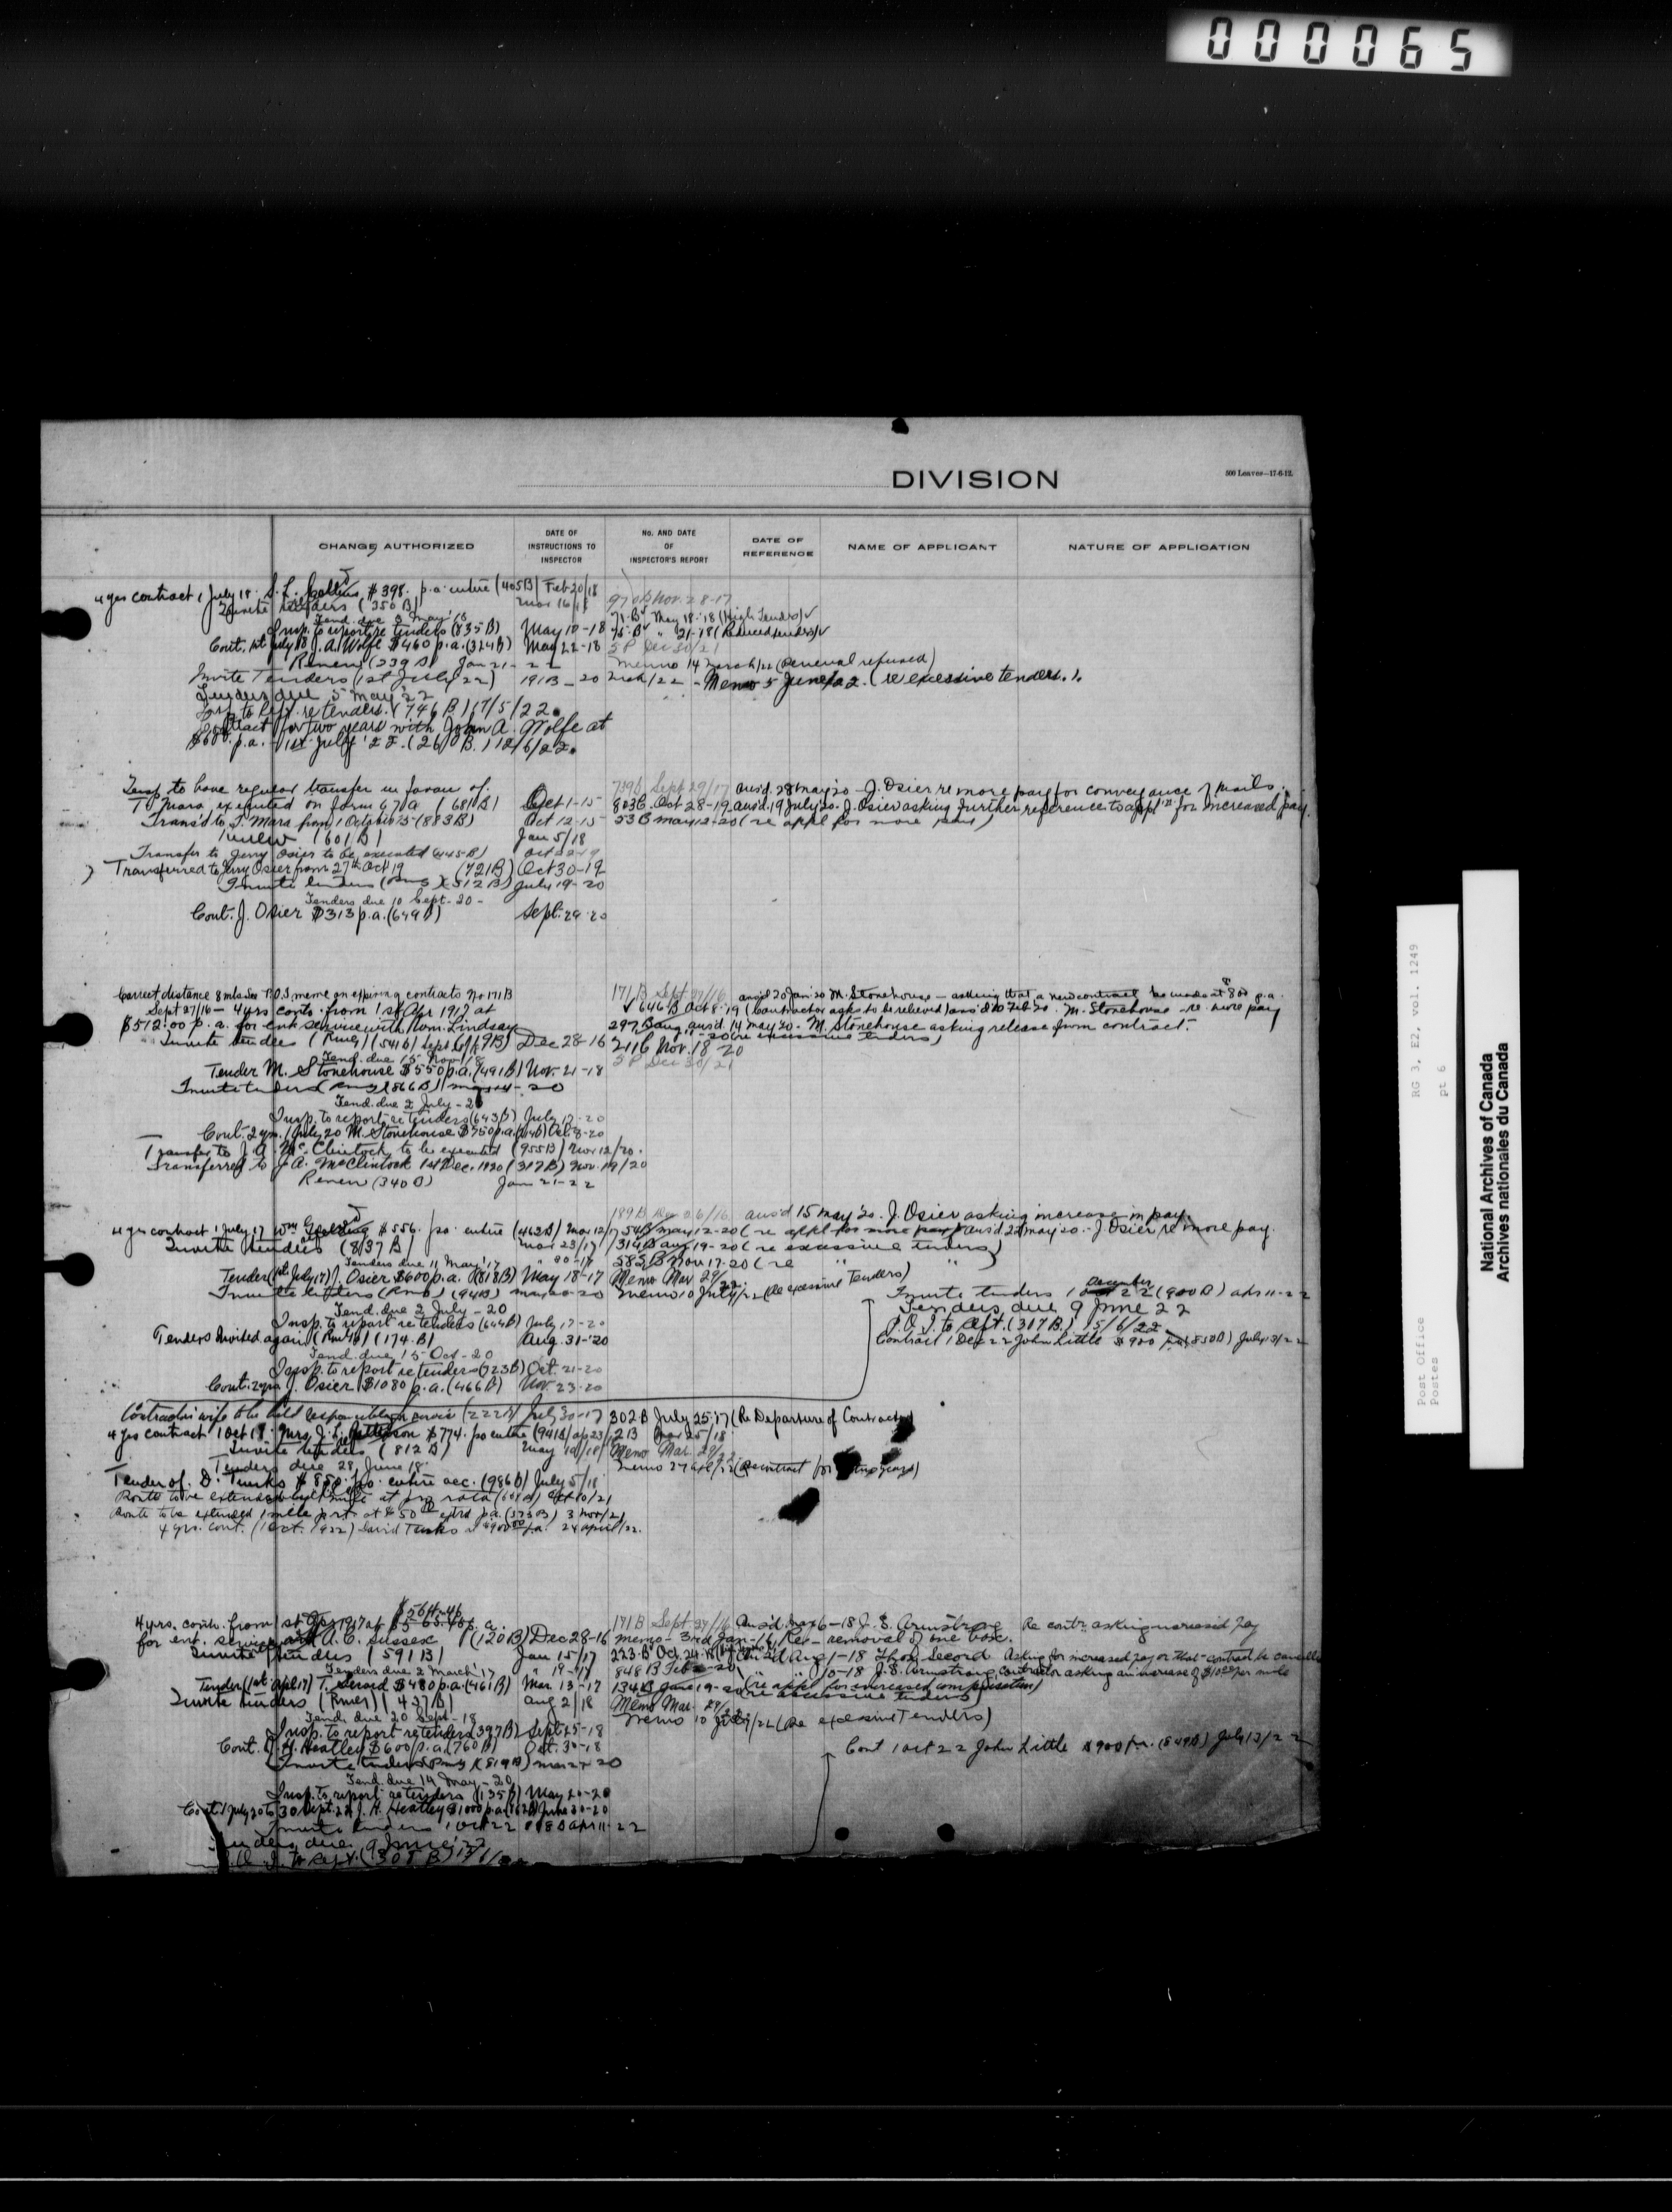 000065
DIVISION
500 Leaves—17-6-12.
CHANGE AUTHORIZED
DATE OF INSTRUCTIONS TO INSPECTOR
No. AND DATE OF INSPECTOR'S REPORT
DATE OF REFERENCE
NAME OF APPLICANT
NATURE OF APPLICATION
4 yrs contract 1 July 18 S. L. $398. p.a. entire (405B) Feb 20/18
Invite tenders (350 B) Mar 16/18 970B Nov. 28-17
Tend. due 3 May '18 71-B May 18-'18 (High Tenders) ✓
Insp. to report re tenders (835 B) May 10-18 75-B " 21-'18 (Reduced tenders) ✓
Cont. 1st July 18 J. A. Wolfe $460 p.a. (324B) May 22-18 5P Dec 30/21
Renew (239 B) Jan 21-22 Memo 14 March/22 (renewal refused)
Invite Tenders (1st July 22) 191B - 20 Mch/22 - Memo 5 June/22. (re excessive tenders.).
Tenders due 5 May 22
Insp to Rep. re tenders. (746 B.) 17/5/22.
Contract for two years with John A. Wolfe at
$600 p.a. - 1st July '22. (260 B.) 12/6/22.
Insp to have regular transfer in favor of 739B Sept 29/17 ans'd. 28 May 20 - J. Osier re more pay for conveyance of mails.
T. Mara, executed on form 67 a (681B) Oct 1-15 803B. Oct 28-19 ans'd. 19 July 20. J. Osier asking further reference to appl'n for increased pay.
Trans'd to T. Mara from 1 October '15 (883B) Oct 12-15 53B May 12-20 (re appl for more pay)
Renew (601B) Jan 5/18
Transfer to Jerry Osier to be executed (445-B)
Transferred to Jerry Osier from 27th Oct 19 (721B) Oct 30-19
Invite tenders (Rmg) (512B) July 19-20
Tenders due 10 Sept-20-
Cont. J. Osier $313 p.a. (649B) Sept. 29-20
Correct distance 8 mls See P.O.I. memo on expiring contracts No 171B 171B Sept 27/16 ans'd 20 Jan 20 M. Stonehouse - asking that a new contract be made at 800 p.a.
Sept 27/16 - 4 yrs conts. from 1st Apr 1917 at ✓ 646B Oct 8-19 (Contractor asks to be relieved) ans'd 10 Feb 20. M. Stonehouse - re more pay
$512.00 p.a. for ent service with Wm. Lindsay 297B Aug ans'd. 14 May 20 - M. Stonehouse asking release from contract.
Invite tenders (Rmg) (541B) Dec 28-16 211B Nov. 18-20
Tend. due 15 Nov/18 5P Dec 30/21
Tender M. Stonehouse $550 p.a. (491B) Nov. 21-18
Invite tenders (Rmg) (866B)
Tend. due 2 July - 20
Insp. to report re tenders (643B) July 17-20
Cont. 2 yrs. 1 July 20 M. Stonehouse $750 p.a.
Transfer to J. A. McClintock to be executed (955B) Nov 12/20.
Transferred to J. A. McClintock 1st Dec. 1920 (317B) Nov. 19/20
Renew (340B) Jan 21-22
ans'd 15 May '20. J. Osier asking increase in pay.
4 yrs contract 1 July 17 Wm $556. p.a. entire (462B) Mar 12/17 54B May 12-20 (re appl for more pay) ans'd 22 May 20 - J. Osier re more pay.
Invite tenders (837B) Mar 23/17 314B Aug 19-20 (re excessive tenders)
Tenders due 11 May '17 585B Nov 17-20 (re " ")
Tender (1st July 17) J. Osier $600 p.a. (818B) May 18-17 Memo Mar 29/22
Invite tenders (Rmg) (94B) Memo 10 July/22 (Re excessive Tenders)
Tend. due 2 July - 20
Insp. to report re tenders (644B) July 17-20
Tenders invited again (Rmg) (174-B) Aug. 31-'20
Tend. due 15-Oct-20
Insp. to report re tenders (723B) Oct. 21-20
Cont. 2 yrs J. Osier $1080 p.a. (466B) Nov. 23-20
Invite tenders 1 December 22 (900B) apr 11-22
Tenders due 9 June 22
P.O.I. to Rept. (317B.) 15/6/22
Contract 1 Dec 22 John Little $900 p.a. (850B) July 13/22
Contractor's wife to be held responsible for service (222B) July 30-17 302B July 25-'17 (Re Departure of Contractor)
4 yrs contract 1 Oct 18. Mrs. J. L. $774. p.a. entire (941B)
Invite tenders (812B) May 10/18 Memo Mar. 29/22
Tenders due 28 June 18. Memo 27 Apl/22 (re contract for two years)
Tender of D. Tunks $850 p.a. entire acc. (986B) July 5/18
Route to be extended 1 mile at pro rata
Route to be extended 1 mile at $50.00 extra p.a. (573B) 3 Nov/21
4 yrs. cont. (1 Oct. 1922) David Tunks $900.00 p.a. 24 April/22.
$564.46
4 yrs. contr. from 1st Apr 1917 at p.a. 171B Sept 27/16 Ans'd. Mar 6-18 J. S. Armstrong Re contr. asking increased pay
for ent. service with A. C. Sussex (120B) Dec 28-16 Memo - 3rd Jan-16, Re - removal of one box.
Invite tenders (591B) Jan 15/17 Aug 1-18 Thos. Second Asking for increased pay or that contract be cancelled
Tenders due 2 March '17 " 19-17 848B Feb 10-18 J. S. Armstrong, Contractor asking an increase of $10.00 per mile
Tender (1st Apl 17) T. Second $480 p.a. (461B) Mar. 13-17 134B June 19-20 (re appl for increased compensation)
Invite tenders (Rmg) (437B) Aug 2/18 Memo Mar. 29/22 (re excessive tenders)
Tend. due 20 Sept-18 Memo 10 July/22 (Re excessive Tenders)
Insp. to report re tenders (397B) Sept. 25-18
Cont. J. H. Heatley $600 p.a. (760B) Oct. 30-18
Invite tenders (Rmg) (819B) Mar 24-20
Tend. due 14 May - 20
Insp. to report re tenders (135B) May 20-20
Cont. 1 July 20 to 30 Sept. 22 J. H. Heatley $1000 p.a. June 30-20
Invite tenders 1 Oct 22 apr 11-22
Tenders due 9 June '22
P.O.I. to Rept. (305 B)
Cont 1 Oct 22 John Little $900 p.a. (849B) July 13/22
RG 3, E2, vol. 1249
pt 6
Post Office
Postes
National Archives of Canada
Archives nationales du Canada